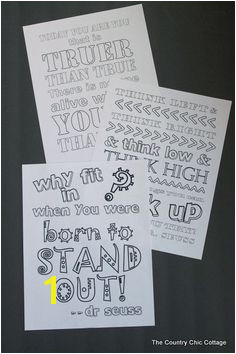 TODAY YOU ARE YOU
that is
TRUER
THAN TRUE
There is no one
alive w
YOU
THAN
THINK LEFT &
THINK RIGHT
& think low &
THINK HIGH
k up
DR. SEUSS
why fit
in
when you were
born to
STAND
OUT!
-- dr seuss
10
The Country Chic Cottage